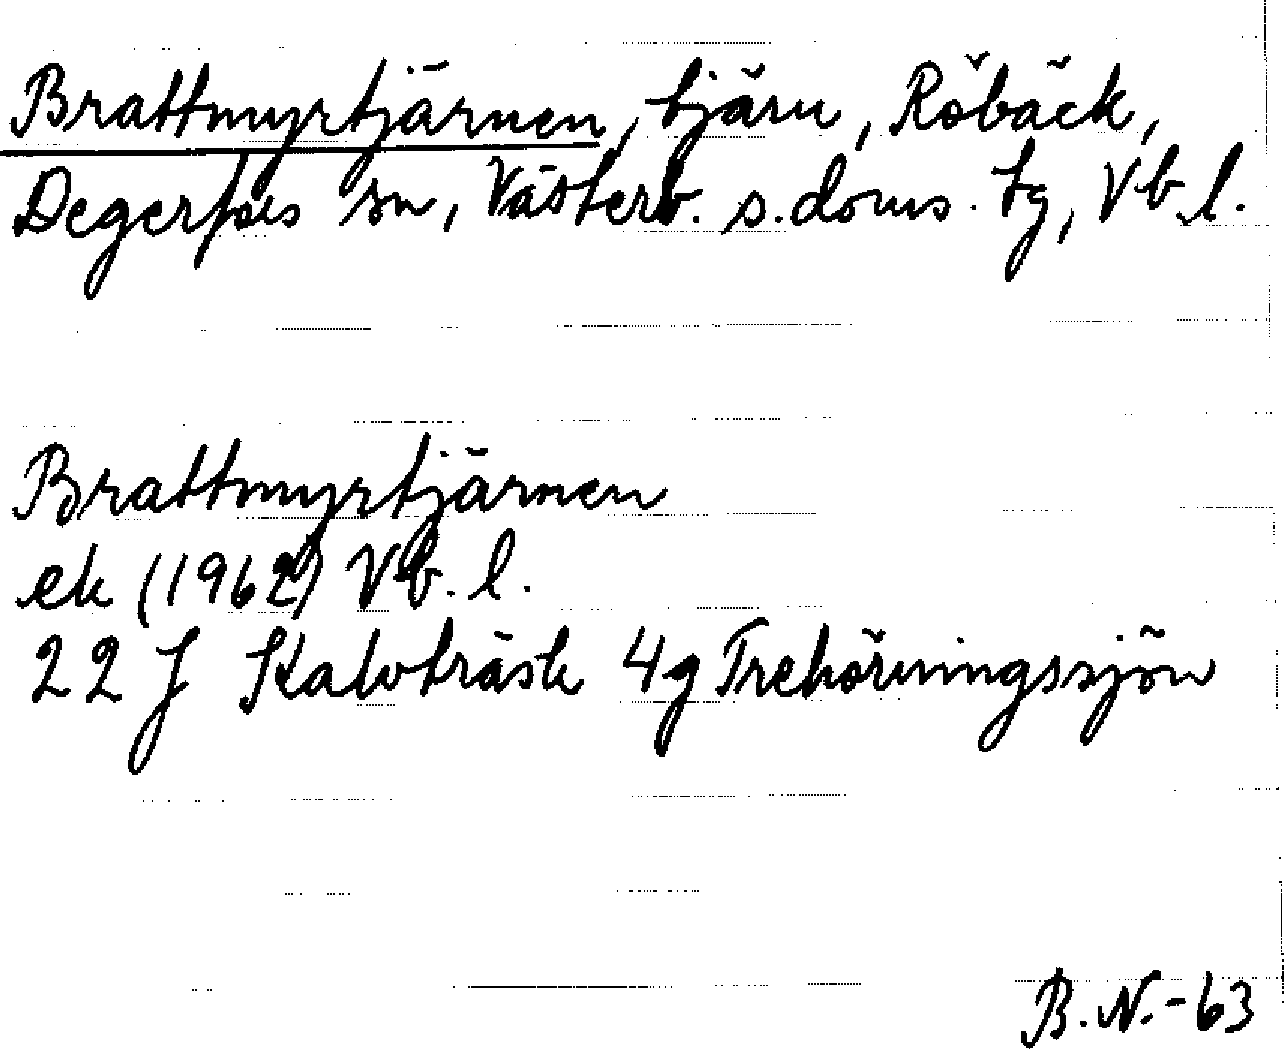 Brattmyrtjärnen, tjärn, Röbäck,
Degerfors sn, Västerb. s. doms. tg, Vb.l.
Brattmyrtjärnen
ek (1962) Vb. l.
22 J Kalvträsk 4g Trehörningssjön
B.N.-63